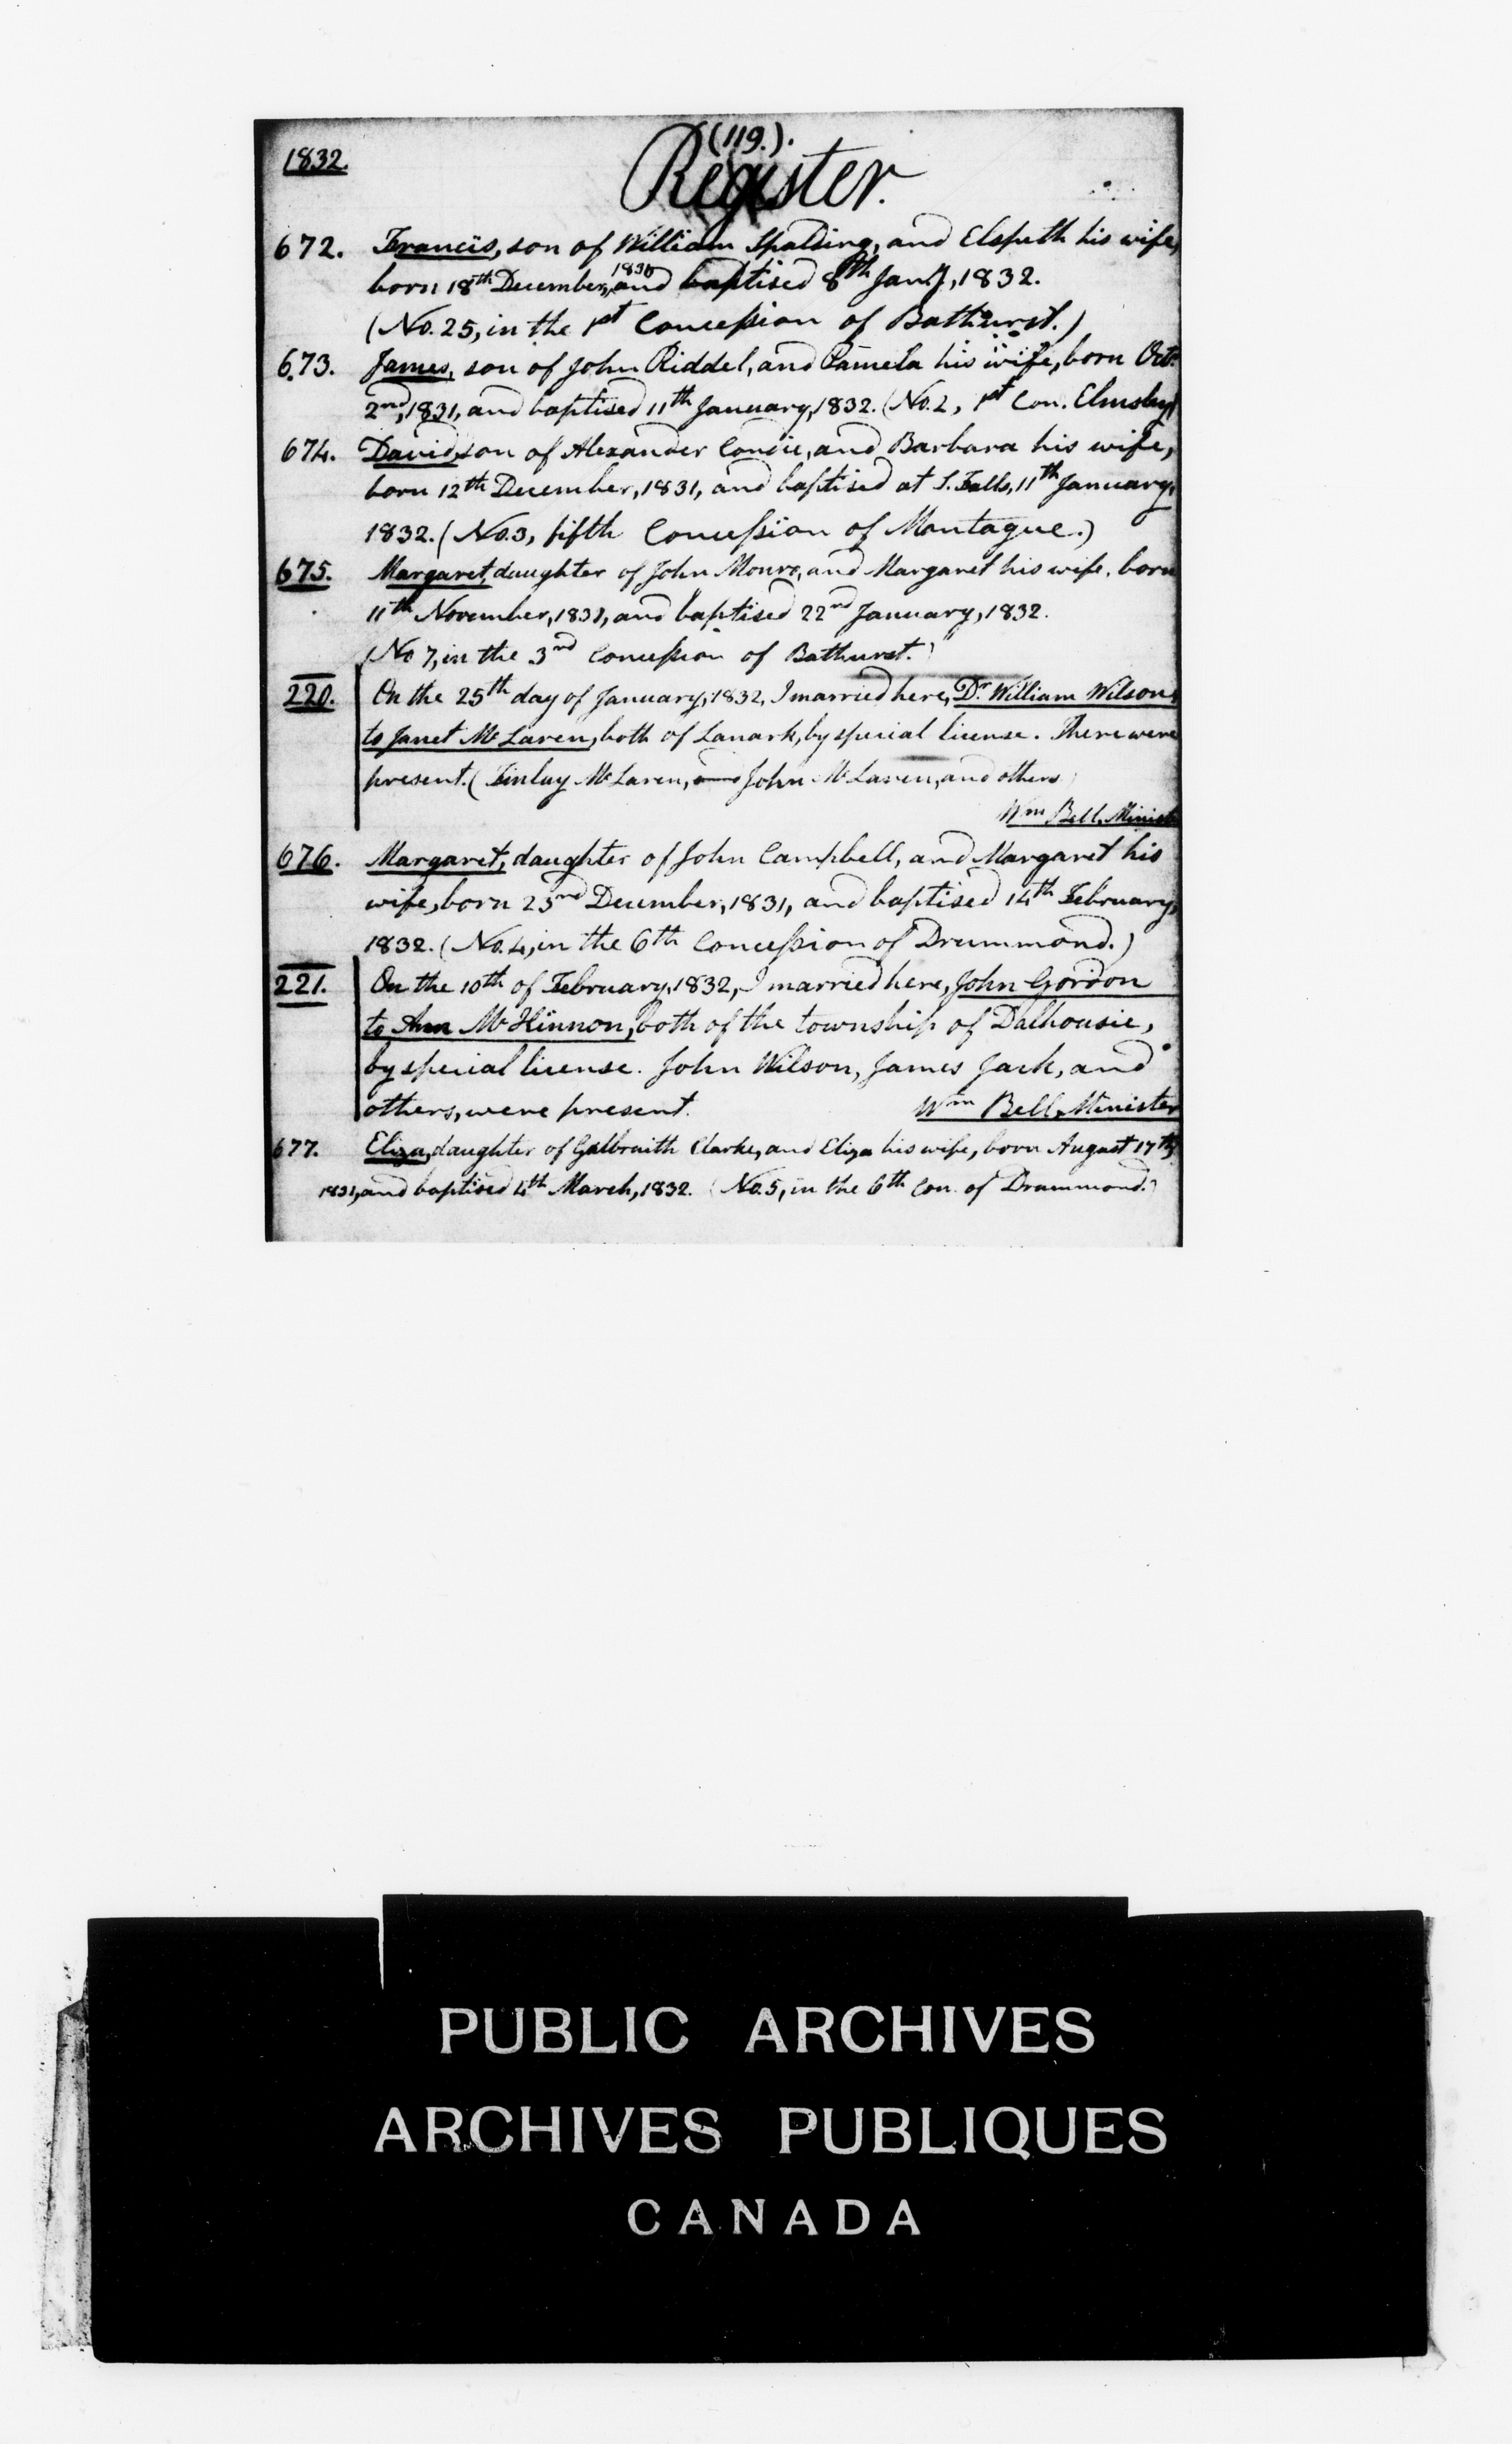 (119.).
1832.
Register.
672. Francis, son of William Spalding, and Elspeth his wife,
born 18th December, 1831, and baptised 8th Jany, 1832.
(No. 25, in the 1st Concession of Bathurst.)
673. James, son of John Riddel, and Pamela his wife, born Octr.
2nd, 1831, and baptised 11th January, 1832. (No. 2, 1st Con. Elmsley)
674. David, son of Alexander Condie, and Barbara his wife,
born 12th December, 1831, and baptised at S. Falls, 11th January,
1832. (No. 3, fifth Concession of Montague.)
675. Margaret, daughter of John Monro, and Margaret his wife, born
11th November, 1831, and baptised 22nd January, 1832.
(No 7, in the 3rd Concession of Bathurst.)
220. On the 25th day of January, 1832, I married here, Dr. William Wilson,
to Janet McLaren, both of Lanark, by special license. There were
present. (Finlay McLaren, and John McLaren, and others)
Wm Bell, Minister
676. Margaret, daughter of John Campbell, and Margaret his
wife, born 23rd December, 1831, and baptised 14th February,
1832. (No. 4, in the 6th Concession of Drummond.)
221. On the 10th of February, 1832, I married here, John Gordon
to Ann McKinnon, both of the township of Dalhousie,
by special license. John Wilson, James Jack, and
others, were present. Wm Bell, Minister
677. Eliza, daughter of Galbraith Clarke, and Eliza his wife, born August 17th,
1831, and baptised 4th March, 1832. (No. 5, in the 6th Con. of Drummond.)
PUBLIC ARCHIVES
ARCHIVES PUBLIQUES
CANADA